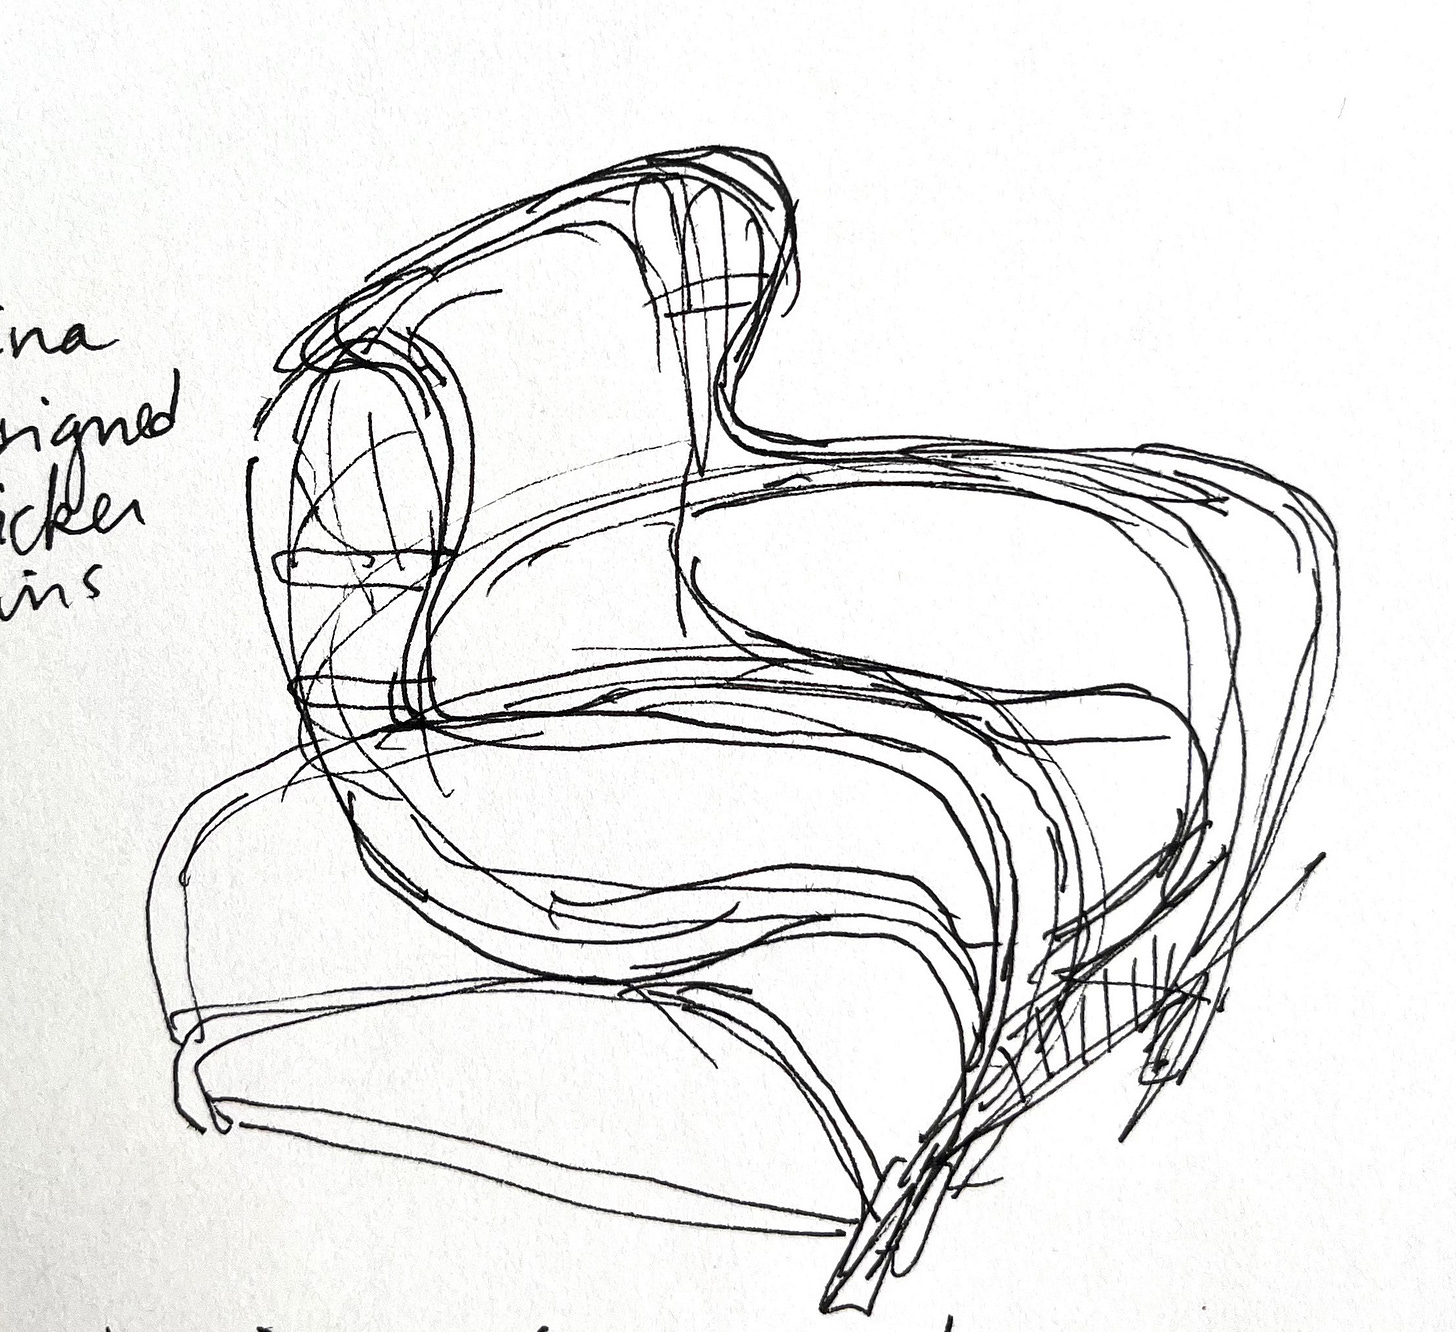 ina
signed
icker
ins